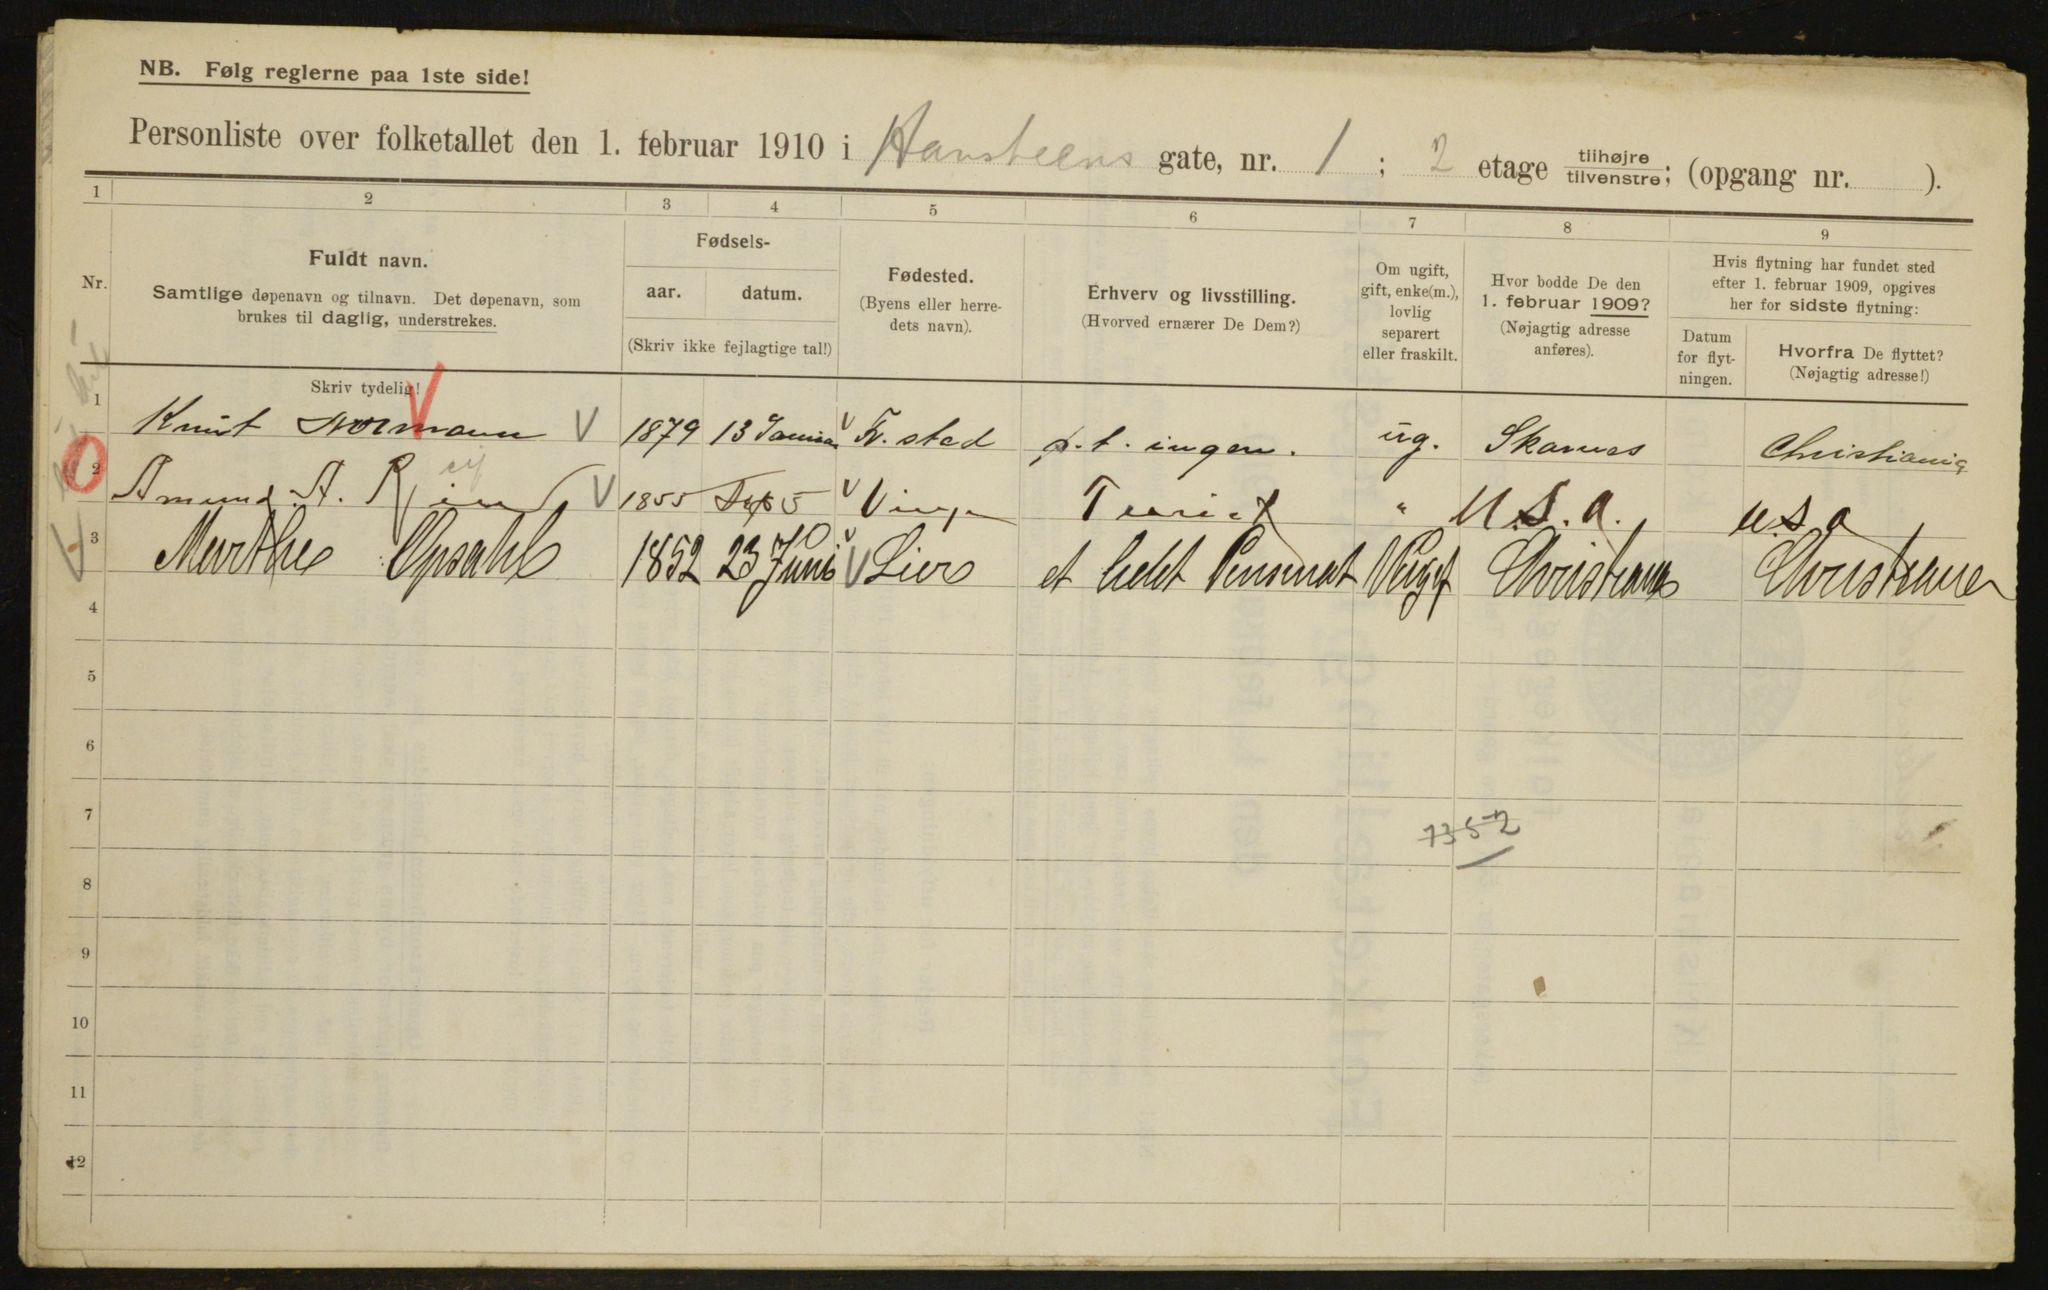 NB. Følg reglerne paa 1ste side!
Personliste over folketallet den 1. februar 1910 i Hansteens gate, nr. 1 ; 2 etage tilhøjre tilvenstre; (opgang nr. ).
1 2 3 4 5 6 7 8 9
Nr.
Fuldt navn.
Samtlige døpenavn og tilnavn. Det døpenavn, som
brukes til daglig, understrekes.
Skriv tydelig!
Fødsels-
aar. datum.
(Skriv ikke fejlagtige tal!)
Fødested.
(Byens eller herre-
dets navn).
Erhverv og livsstilling.
(Hvorved ernærer De Dem?)
Om ugift,
gift, enke(m.),
lovlig
separert
eller fraskilt.
Hvor bodde De den
1. februar 1909?
(Nøjagtig adresse
anføres).
Hvis flytning har fundet sted
efter 1. februar 1909, opgives
her for sidste flytning:
Datum
for flyt-
ningen.
Hvorfra De flyttet?
(Nøjagtig adresse!)
1 Knut Normann V 1879 13 Januar Fr. stad p.t. ingen. ug. Skarnes Christiania
2 Amund A. V 1855 Sept 5 Vinger Turist " U.S.A. U.S.A
3 Marthe Opsahl 1852 23 Juni Lier et lidet Pensinat Christiania Christiania
4
5
6
7
7352
8
9
10
11
12